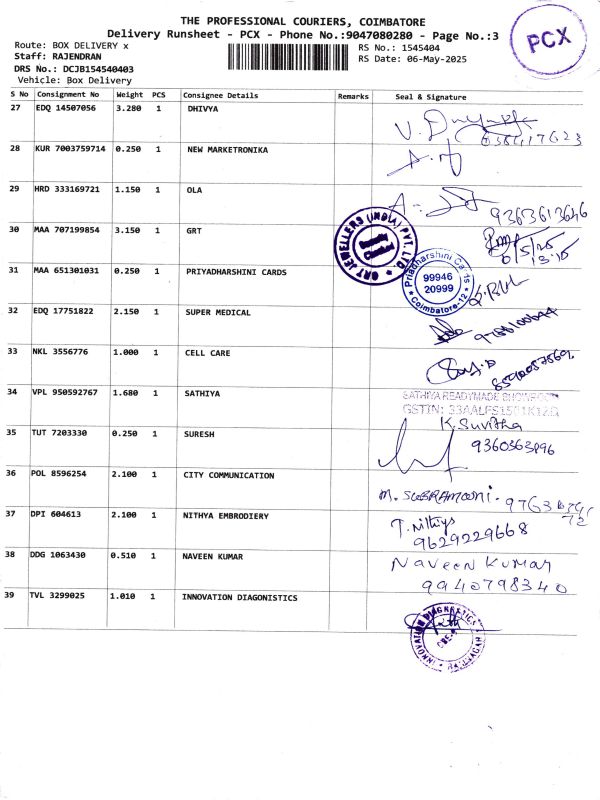 THE PROFESSIONAL COURIERS, COIMBATORE
Delivery Runsheet - PCX - Phone No.:9047080280 - Page No.:3
PCX
Route: BOX DELIVERY x
RS No.: 1545404
Staff: RAJENDRAN
RS Date: 06-May-2025
DRS No.: DCJB154540403
Vehicle: Box Delivery
S No Consignment No Weight PCS Consignee Details Remarks Seal & Signature
27 EDQ 14507056 3.280 1 DHIVYA
28 KUR 7003759714 0.250 1 NEW MARKETRONIKA
29 HRD 333169721 1.150 1 OLA
9363613646
30 MAA 707199854 3.150 1 GRT
GRT JEWELLERS (INDIA) PVT. LTD.
Security
31 MAA 651301031 0.250 1 PRIYADHARSHINI CARDS
Priyadharshini Cards
99946
20999
Coimbatore-12
32 EDQ 17751822 2.150 1 SUPER MEDICAL
33 NKL 3556776 1.000 1 CELL CARE
34 VPL 950592767 1.680 1 SATHIYA
SATHIYA READYMADE SHOWROOM
K. Suvitha
35 TUT 7203330 0.250 1 SURESH
9360363896
36 POL 8596254 2.100 1 CITY COMMUNICATION
37 DPI 604613 2.100 1 NITHYA EMBRODIERY
T. Nithiya
9629229668
38 DDG 1063430 0.510 1 NAVEEN KUMAR
Naveen Kumar
9940798340
39 TVL 3299025 1.010 1 INNOVATION DIAGONISTICS
INNOVATION DIAGNOSTICS